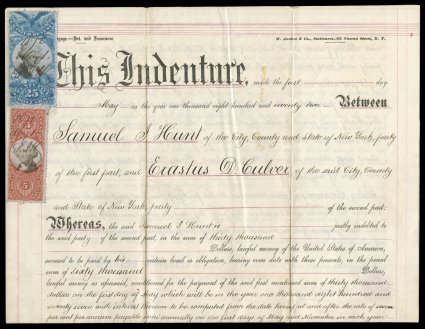 gage.—Int. and Insurance.
This Indenture, made the first day
May in the year one thousand eight hundred and seventy two. Between
Samuel I Hunt of the City, County and state of New York, party
of the first part, and Erastus D. Culver of the said City, County
and State of New York, party of the second part.
Whereas, the said Samuel I Hunt is justly indebted to
the said party of the second part, in the sum of thirty thousand
Dollars, lawful money of the United States of America,
secured to be paid by his certain bond or obligation, bearing even date with these presents, in the penal
sum of sixty thousand Dollars,
lawful money as aforesaid, conditioned for the payment of the said first mentioned sum of thirty thousand
dollars on the first day of May which will be in the year one thousand eight hundred and
seventy seven with interest thereon to be computed from the date hereof at and after the rate of seven
per cent per annum payable semi annually on the first day of May and November in each year.
25
5